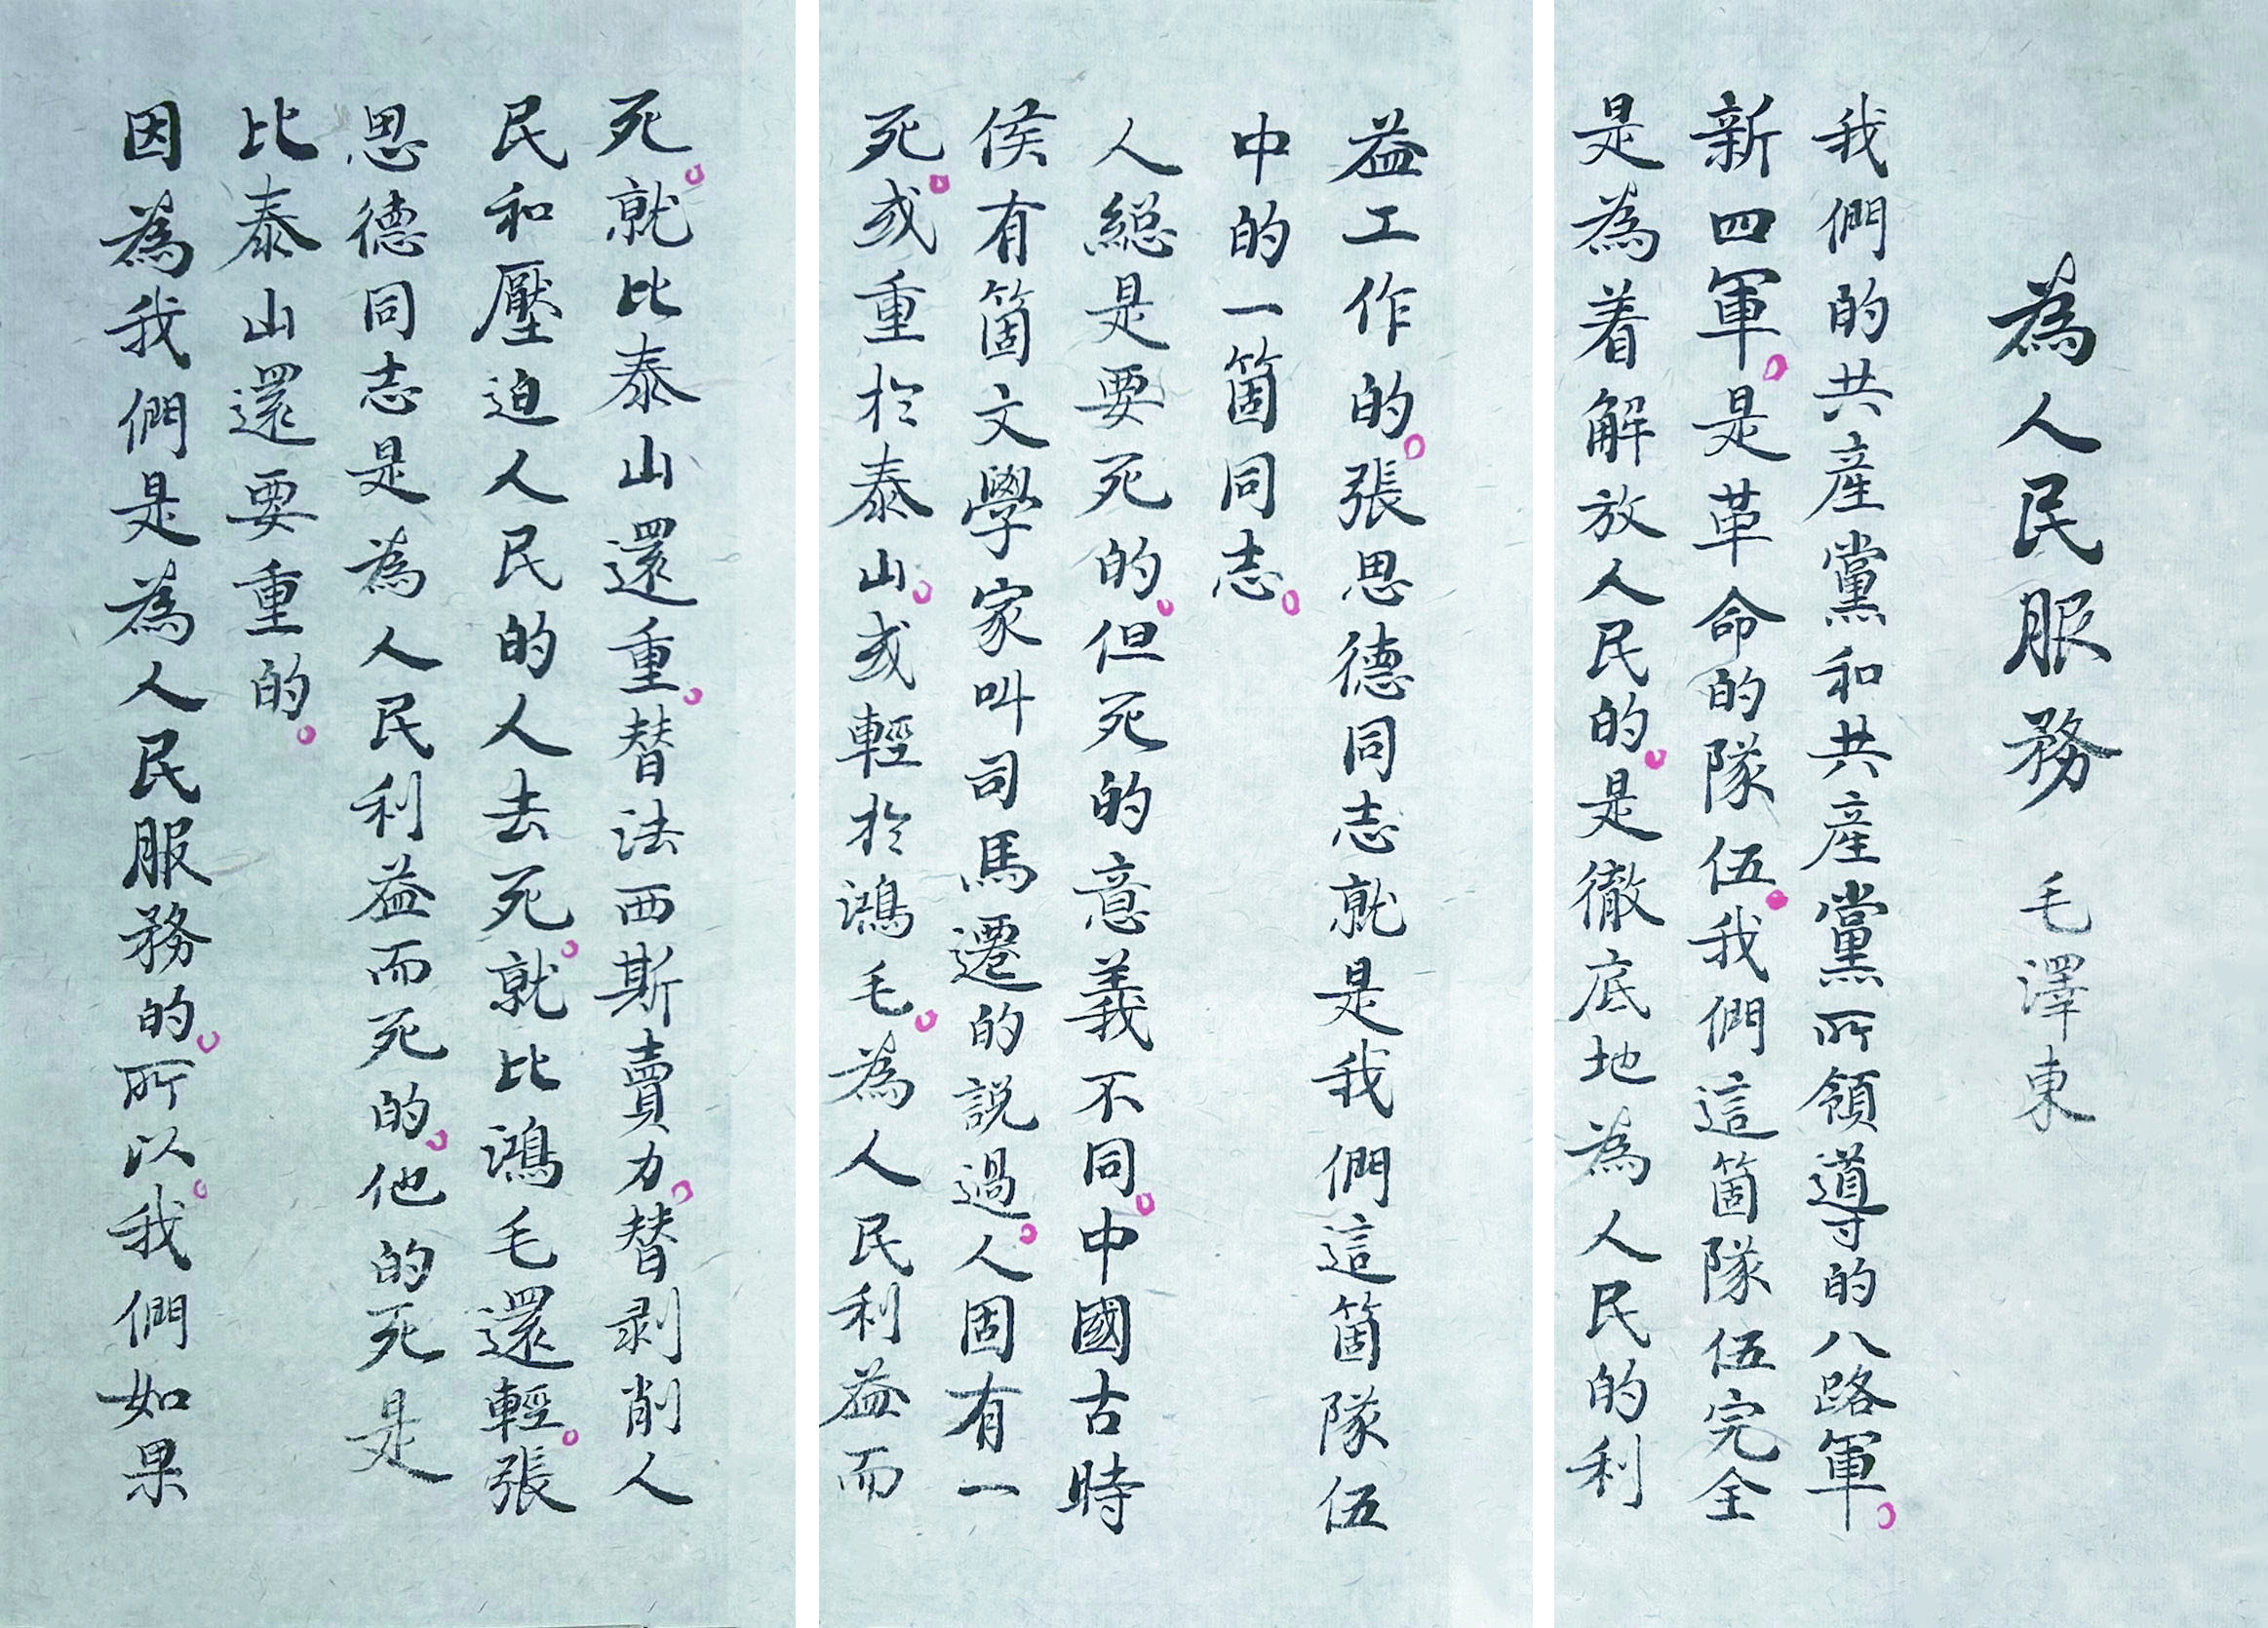 為人民服務 毛澤東
我們的共產黨和共產黨所領導的八路軍。
新四軍。是革命的隊伍。我們這箇隊伍完全
是為着解放人民的。是徹底地為人民的利
益工作的。張思德同志就是我們這箇隊伍
中的一箇同志。
人總是要死的。但死的意義不同。中國古時
侯有箇文學家叫司馬遷的説過。人固有一
死。或重於泰山。或輕於鴻毛。為人民利益而
死。就比泰山還重。替法西斯賣力。替剥削人
民和壓迫人民的人去死。就比鴻毛還輕。張
思德同志是為人民利益而死的。他的死是
比泰山還要重的。
因為我們是為人民服務的。所以。我們如果